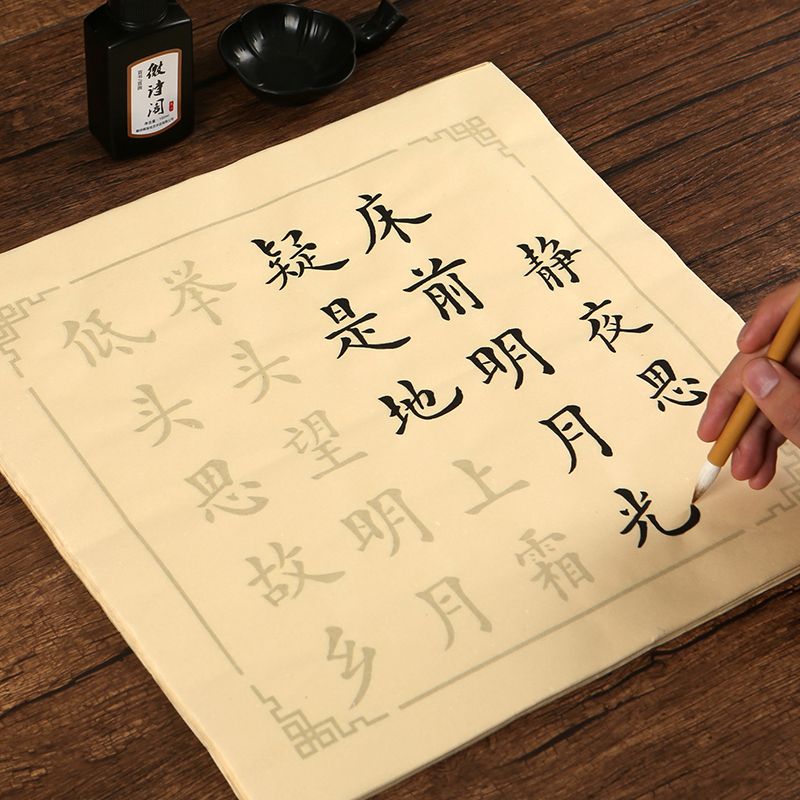 静夜思
床前明月光
疑是地上霜
举头望明月
低头思故乡
微诗阁